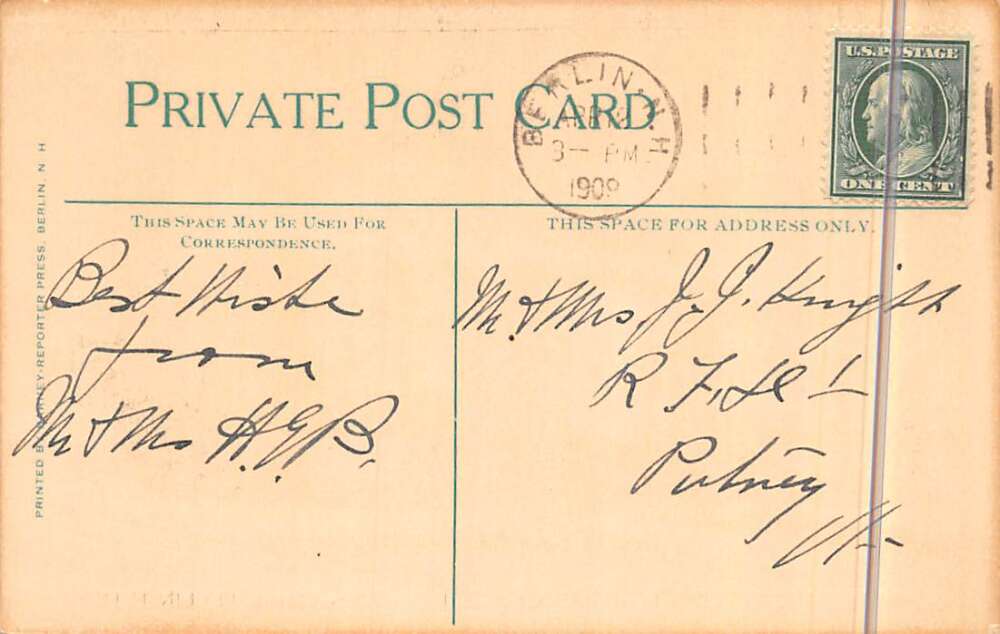 PRIVATE POST CARD
BERLIN, N.H.
3 — PM
1909
U.S. POSTAGE
ONE CENT
THIS SPACE MAY BE USED FOR
CORRESPONDENCE.
THIS SPACE FOR ADDRESS ONLY.
Best Wishe
from
Mr & Mrs H.E.B.
Mr & Mrs J. J. Knight
R F. D 1
Putney
Vt
PRINTED BY REPORTER PRESS, BERLIN, N H